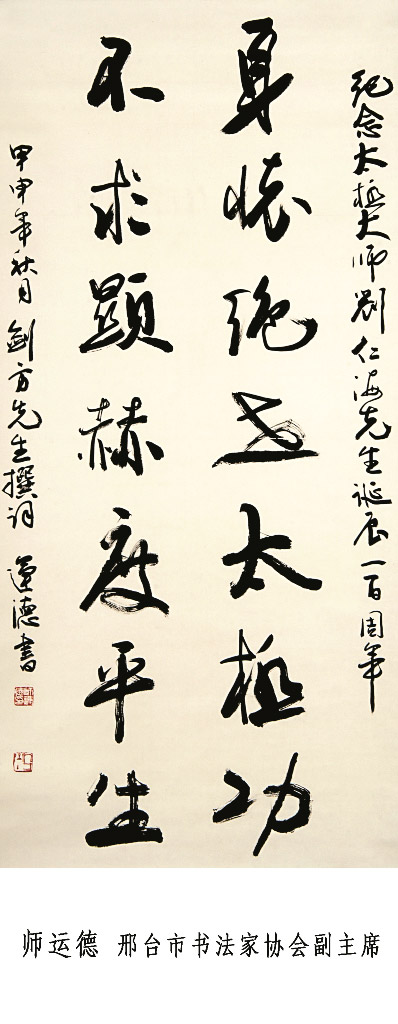 纪念太极大师劉仁海先生诞辰一百周年
身怀绝世太极功
不求顕赫度平生
甲申年秋月剑方先生撰词 運德書
师运德 邢台市书法家协会副主席